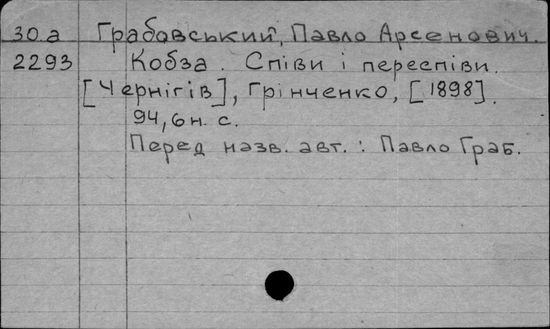 30.а Грабовський, Павло Арсенович.
2293 Кобза. Співи і переспіви.
[Чернігів], Грінченко, [1898].
94, 6 н. с.
Перед назв. авт.: Павло Граб.